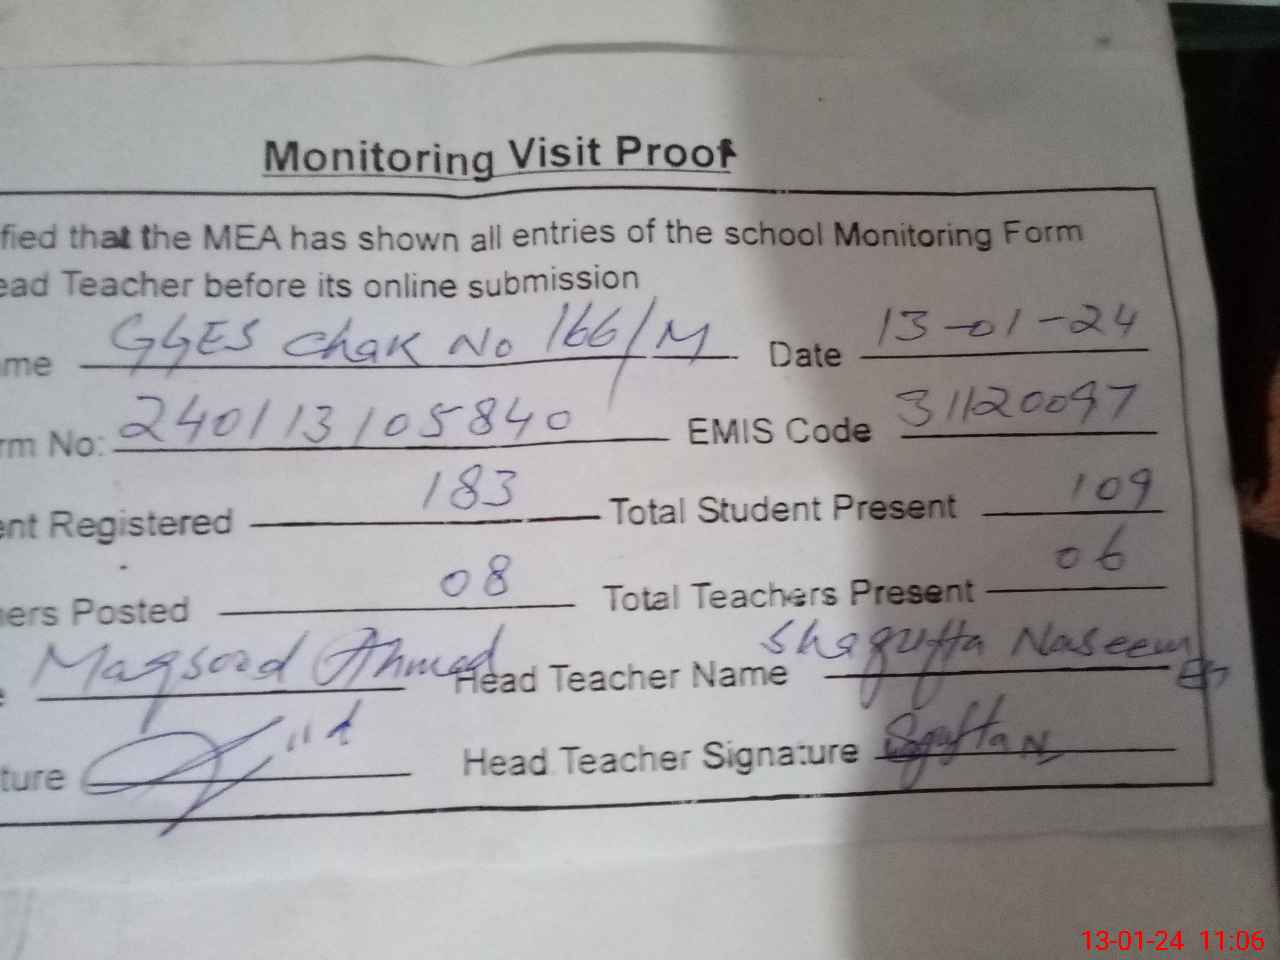 Monitoring Visit Proof
fied that the MEA has shown all entries of the school Monitoring Form
ead Teacher before its online submission
me GGES Chak No 166/M Date 13-01-24
rm No: 240113105840 EMIS Code 31120097
ent Registered 183 Total Student Present 109
ers Posted 08 Total Teachers Present 06
e Maqsood Ahmed Head Teacher Name Shagufta Naseem
ture Head Teacher Signature
13-01-24 11:06